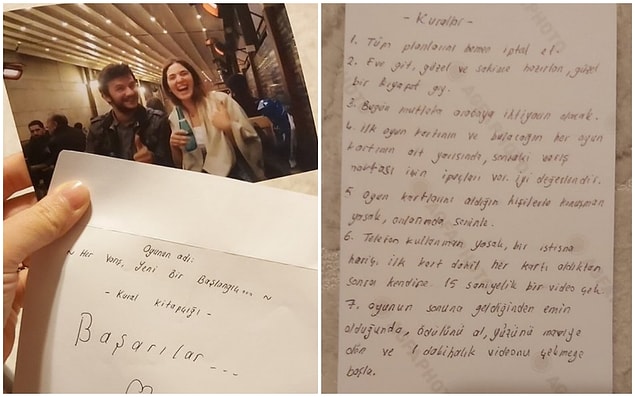 Oyunun adı:
~ Her Varış, Yeni Bir Başlangıç... ~
- Kural Kitapçığı -
Başarılar...
- Kurallar -
1. Tüm planlarını hemen iptal et.
2. Eve git, güzel ve sakince hazırlan, güzel
bir kıyafet giy.
3. Bugün mutlaka arabaya ihtiyacın olacak.
4. İlk oyun kartının ve bulacağın her oyun
kartının alt yarısında, sonraki varış
noktası için ipuçları var. İyi değerlendir.
5. Oyun kartlarını aldığın kişilerle konuşman
yasak, onlarında seninle.
6. Telefon kullanman yasak, bir istisna
hariç; ilk kart dahil her kartı aldıktan
sonra kendine 15 saniyelik bir video çek.
7. Oyunun sonuna geldiğinden emin
olduğunda, ödülünü al, yüzünü maviye
dön ve 1 dakikalık videonu çekmeye
başla.